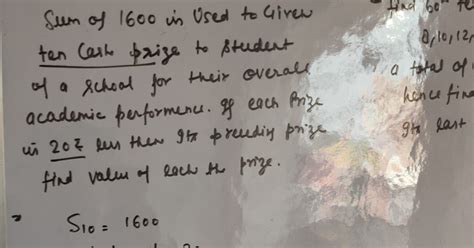 Sum of 1600 is Used to Given
ten Cash prize to student
of a school for their overall
academic performence. If each Prize
is 20₹ less then Its preceding prize
find value of each the prize.
S10 = 1600
find 60th te
8, 10, 12,
a total of
hence fina
Its last